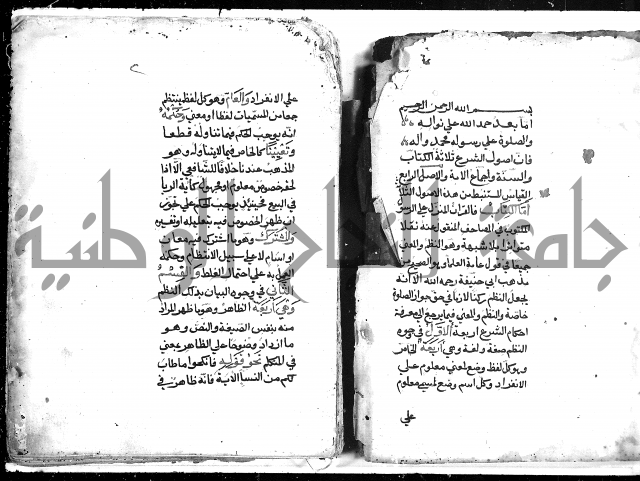 بسم الله الرحمن الرحيم
اما بعد حمد الله علي نواله
والصلوة علي رسوله محمد واله
فان اصول الشرع ثلاثة الكتاب
والسنة واجماع الامة والاصل الرابع
القياس المستنبط من هذه الاصول
اما الكتاب فالقران المنزل علي الرسول
المكتوب في المصاحف المنقول عنه نقلا
متواترا بلا شبهة وهو النظم والمعني
جميعا في قول عامة العلماء وهو الصحيح من
مذهب ابي حنيفة رحمه الله الا انه
لم يجعل النظم ركنا لازما في حق جواز الصلوة
خاصة والنظم والمعني فيما يرجع الي معرفة
احكام الشرع اربعة الاول في وجوه
النظم صيغة ولغة وهي اربعة الخاص
وهو كل لفظ وضع لمعني معلوم علي
الانفراد وكل اسم وضع لمسمي معلوم
علي
علي الانفراد والعام وهو كل لفظ ينتظم
جمعا من المسميات لفظا او معني وحكمه
انه يوجب الحكم فيما تناوله قطعا
ويقينا كالخاص فيما يتناوله وهو
المذهب عندنا خلافا للشافعي الا اذا
لحقه خصوص معلوم او مجهول كآية الربا
في البيع فحينئذ يوجب الحكم علي تجوز
ان يظهر الخصوص فيه بتعليله او تفسيره
والمشترك وهو ما اشترك فيه معان
او اسام لا علي سبيل الانتظام وحكمه
والقسم
الثاني في وجوه البيان بذلك النظم
وهي اربعة الظاهر وهو ما ظهر المراد
منه بنفس الصيغة والنص وهو
ما ازداد وضوحا علي الظاهر بمعني
في المتكلم نحو قوله فانكحوا ما طاب
لكم من النسا الاية فانه ظاهر في
جامعة النجاح الوطنية